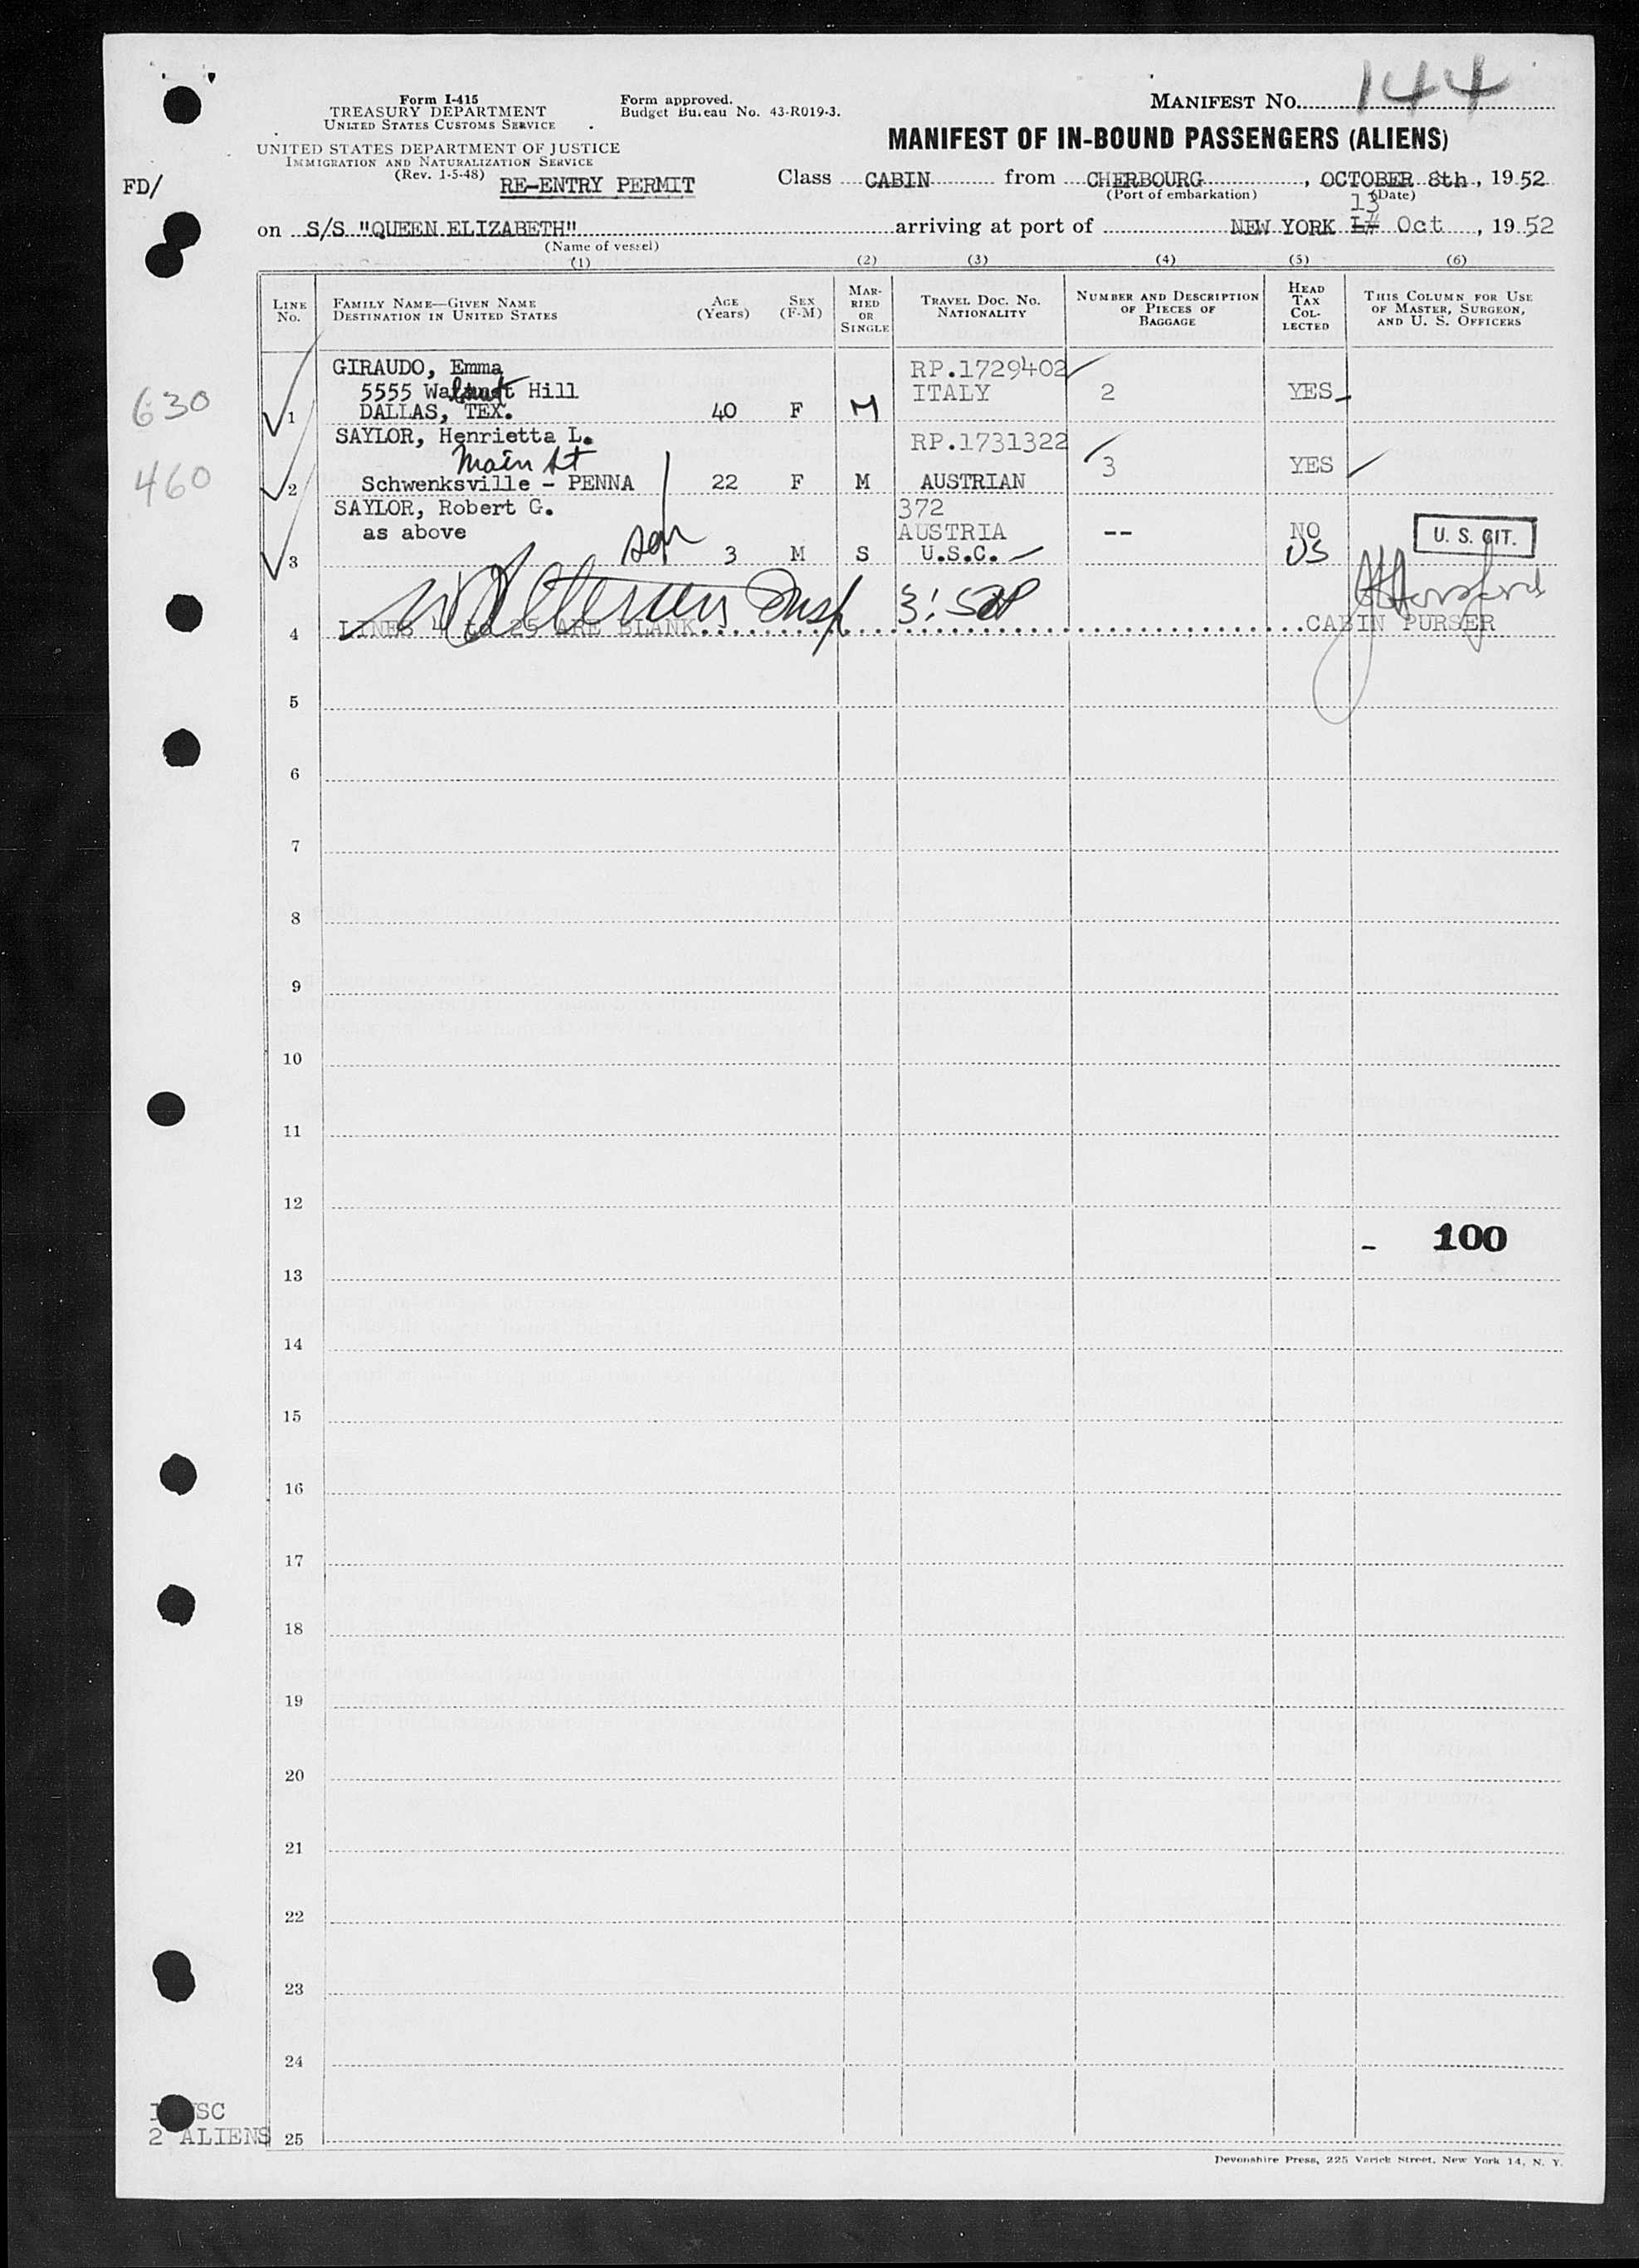 144
Form I-415
TREASURY DEPARTMENT
UNITED STATES CUSTOMS SERVICE
Form approved.
Budget Bureau No. 43-R019-3.
MANIFEST No.
UNITED STATES DEPARTMENT OF JUSTICE
IMMIGRATION AND NATURALIZATION SERVICE
(Rev. 1-5-48)
MANIFEST OF IN-BOUND PASSENGERS (ALIENS)
FD/
RE-ENTRY PERMIT
Class CABIN from CHERBOURG, OCTOBER 8th, 1952
(Port of embarkation) (Date)
13
on S/S "QUEEN ELIZABETH" arriving at port of NEW YORK Oct, 1952
(Name of vessel)
(1) (2) (3) (4) (5) (6)
LINE No.
FAMILY NAME—GIVEN NAME
DESTINATION IN UNITED STATES
AGE (Years)
SEX (F-M)
MARRIED OR SINGLE
TRAVEL DOC. NO. NATIONALITY
NUMBER AND DESCRIPTION OF PIECES OF BAGGAGE
HEAD TAX COLLECTED
THIS COLUMN FOR USE OF MASTER, SURGEON, AND U. S. OFFICERS
GIRAUDO, Emma RP.1729402
630 5555 Walnut Hill ITALY 2 YES
1 DALLAS, TEX. 40 F M
SAYLOR, Henrietta L. RP.1731322
460 Main St 3 YES
2 Schwenksville - PENNA 22 F M AUSTRIAN
SAYLOR, Robert G. 372
as above AUSTRIA -- NO U. S. CIT.
3 son 3 M S U.S.C. US
Insp 3:50P
4 LINES 4 to 25 ARE BLANK CABIN PURSER
5
6
7
8
9
10
11
12
- 100
13
14
15
16
17
18
19
20
21
22
23
24
1 USC
2 ALIENS
25
Devonshire Press, 225 Varick Street, New York 14, N. Y.